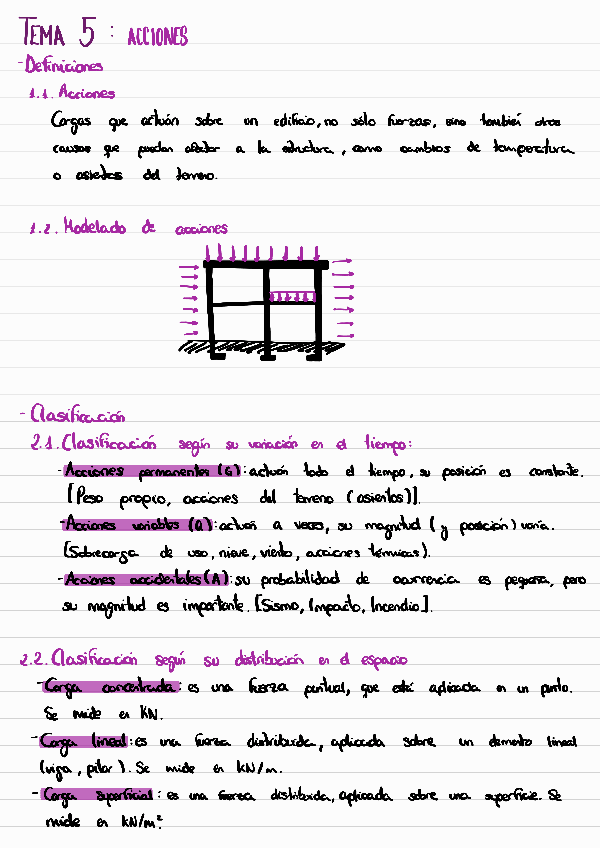 TEMA 5 : ACCIONES
- Definiciones
1.1. Acciones
Cargas que actúan sobre un edificio, no sólo fuerzas, sino también otras
causas que puedan afectar a la estructura, como cambios de temperatura
o asientos del terreno.
1.2. Modelado de acciones
- Clasificación
2.1. Clasificación según su variación en el tiempo:
- Acciones permanentes (G): actúan todo el tiempo, su posición es constante.
[Peso propio, acciones del terreno (asientos)].
- Acciones variables (Q): actúan a veces, su magnitud (y posición) varía.
[Sobrecarga de uso, nieve, viento, acciones térmicas).
- Acciones accidentales (A): su probabilidad de ocurrencia es pequeña, pero
su magnitud es importante. [Sismo, Impacto, Incendio].
2.2. Clasificación según su distribución en el espacio
- Carga concentrada: es una fuerza puntual, que está aplicada en un punto.
Se mide en KN.
- Carga lineal: es una fuerza distribuida, aplicada sobre un elemento lineal
(viga, pilar). Se mide en kN/m.
- Carga superficial: es una fuerza distribuida, aplicada sobre una superficie. Se
mide en kN/m².